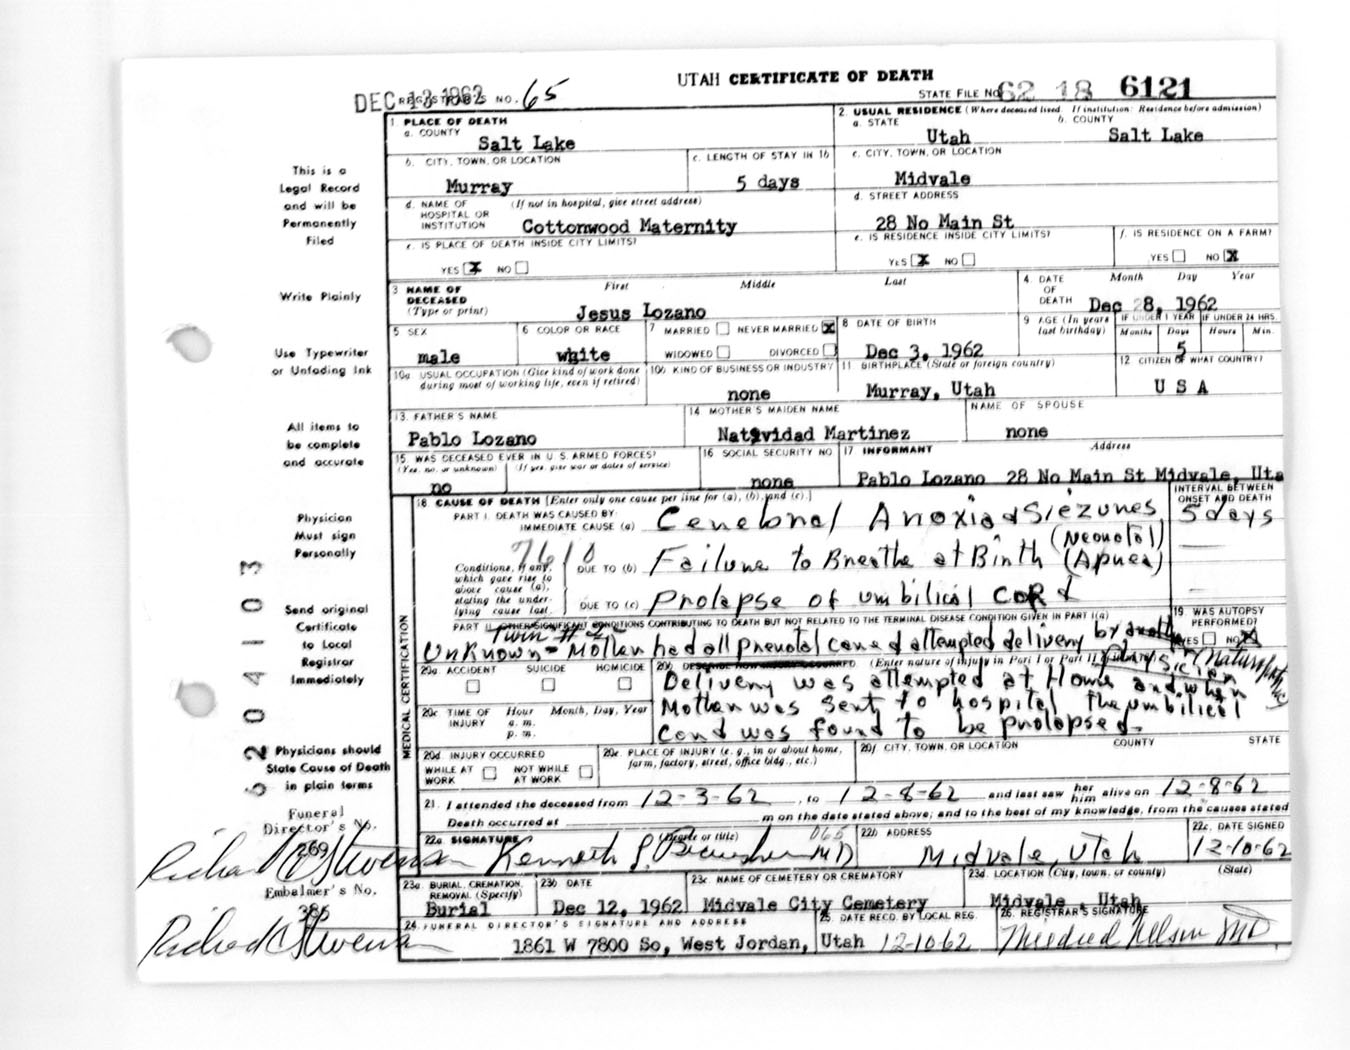 UTAH CERTIFICATE OF DEATH
DEC 13 1962
REGISTRAR'S NO. 65
STATE FILE NO. 62 18 6121
This is a
Legal Record
and will be
Permanently
Filed
Write Plainly
Use Typewriter
or Unfading Ink
All items to
be complete
and accurate
Physician
Must sign
Personally
Send original
Certificate
to Local
Registrar
Immediately
Physicians should
State Cause of Death
in plain terms
Funeral
Director's No.
269
Richard C Stevenson
Embalmer's No.
386
Richard C Stevenson
62041103
1 PLACE OF DEATH
a. COUNTY
Salt Lake
2. USUAL RESIDENCE (Where deceased lived. If institution: Residence before admission)
a. STATE
Utah
b. COUNTY
Salt Lake
b. CITY, TOWN, OR LOCATION
Murray
c. LENGTH OF STAY IN 1b
5 days
c. CITY, TOWN, OR LOCATION
Midvale
d. NAME OF HOSPITAL OR INSTITUTION (If not in hospital, give street address)
Cottonwood Maternity
d. STREET ADDRESS
28 No Main St
e. IS PLACE OF DEATH INSIDE CITY LIMITS?
YES X NO
e. IS RESIDENCE INSIDE CITY LIMITS?
YES X NO
f. IS RESIDENCE ON A FARM?
YES NO X
3 NAME OF DECEASED (Type or print)
First Middle Last
Jesus Lozano
4. DATE OF DEATH
Month Day Year
Dec 8, 1962
5 SEX
male
6 COLOR OR RACE
white
7 MARRIED NEVER MARRIED X
WIDOWED DIVORCED
8 DATE OF BIRTH
Dec 3, 1962
9 AGE (In years last birthday)
IF UNDER 1 YEAR IF UNDER 24 HRS.
Months Days Hours Min.
5
10a USUAL OCCUPATION (Give kind of work done during most of working life, even if retired)
10b KIND OF BUSINESS OR INDUSTRY
none
11 BIRTHPLACE (State or foreign country)
Murray, Utah
12 CITIZEN OF WHAT COUNTRY?
U S A
13. FATHER'S NAME
Pablo Lozano
14 MOTHER'S MAIDEN NAME
Natividad Martinez
NAME OF SPOUSE
none
15 WAS DECEASED EVER IN U. S. ARMED FORCES?
(Yes, no, or unknown) (If yes, give war or dates of service)
no
16 SOCIAL SECURITY NO
none
17 INFORMANT Address
Pablo Lozano 28 No Main St Midvale, Uta
18 CAUSE OF DEATH [Enter only one cause per line for (a), (b), and (c).]
INTERVAL BETWEEN ONSET AND DEATH
PART I. DEATH WAS CAUSED BY:
IMMEDIATE CAUSE (a) Cerebral Anoxia & Siezures
5 days
(Neonatal)
7610
Conditions, if any, which gave rise to above cause (a), stating the underlying cause last.
DUE TO (b) Failure to Breathe at Birth (Apnea)
DUE TO (c) Prolapse of umbilical cord
PART II OTHER SIGNIFICANT CONDITIONS CONTRIBUTING TO DEATH BUT NOT RELATED TO THE TERMINAL DISEASE CONDITION GIVEN IN PART I(a)
Twin #2
Unknown - Mother had all prenatal care & attempted delivery by
physician (Naturopathic)
19. WAS AUTOPSY PERFORMED?
YES NO X
MEDICAL CERTIFICATION
20a ACCIDENT SUICIDE HOMICIDE
20b DESCRIBE HOW INJURY OCCURRED. (Enter nature of injury in Part I or Part II
Delivery was attempted at Home and when
Mother was sent to hospital the umbilical
cord was found to be prolapsed.
20c TIME OF INJURY
Hour Month, Day, Year
a. m.
p. m.
20d INJURY OCCURRED
WHILE AT WORK NOT WHILE AT WORK
20e. PLACE OF INJURY (e. g., in or about home, farm, factory, street, office bldg., etc.)
20f CITY, TOWN, OR LOCATION COUNTY STATE
21. I attended the deceased from 12-3-62, to 12-8-62 and last saw her him alive on 12-8-62
Death occurred at m on the date stated above; and to the best of my knowledge, from the causes stated
22a SIGNATURE (Degree or title)
065
22b ADDRESS
Midvale, Utah
22c. DATE SIGNED
12-10-62
23a. BURIAL, CREMATION, REMOVAL (Specify)
Burial
23b DATE
Dec 12, 1962
23c NAME OF CEMETERY OR CREMATORY
Midvale City Cemetery
23d. LOCATION (City, town, or county) (State)
Midvale, Utah
24 FUNERAL DIRECTOR'S SIGNATURE AND ADDRESS
1861 W 7800 So, West Jordan, Utah
25 DATE RECD. BY LOCAL REG.
12-10 62
26. REGISTRAR'S SIGNATURE
Mildred Nelson MD